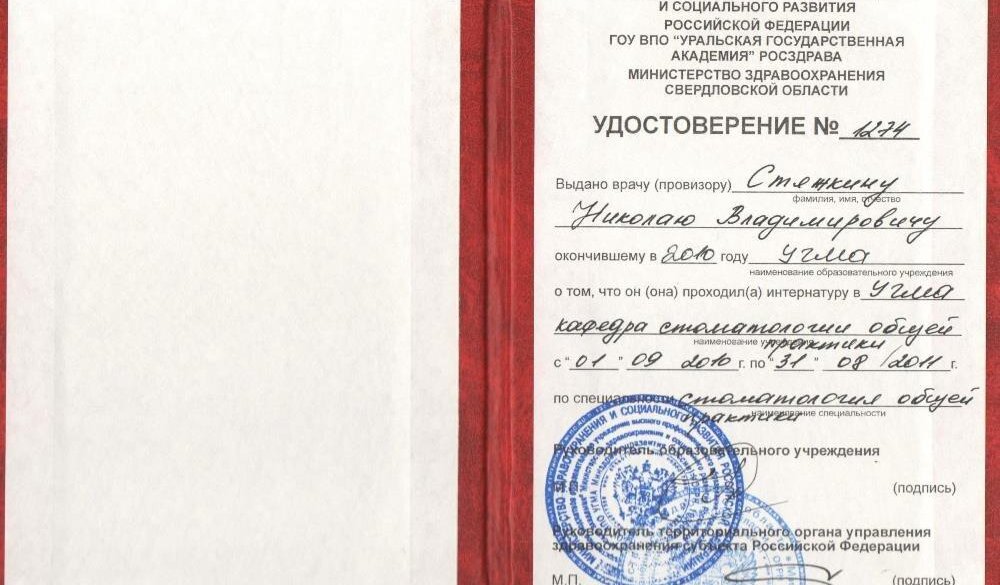 И СОЦИАЛЬНОГО РАЗВИТИЯ
РОССИЙСКОЙ ФЕДЕРАЦИИ
ГОУ ВПО “УРАЛЬСКАЯ ГОСУДАРСТВЕННАЯ
АКАДЕМИЯ” РОСЗДРАВА
МИНИСТЕРСТВО ЗДРАВООХРАНЕНИЯ
СВЕРДЛОВСКОЙ ОБЛАСТИ
УДОСТОВЕРЕНИЕ № 1274
Выдано врачу (провизору) Стяжкину
фамилия, имя, отчество
Николаю Владимировичу
окончившему в 2010 году УГМА
наименование образовательного учреждения
о том, что он (она) проходил(а) интернатуру в УГМА
кафедра стоматологии общей
наименование учреждения
практики
с “01” 09 2010 г. по “31” 08 2011 г.
по специальности стоматология общей
практики
наименование специальности
Руководитель образовательного учреждения
М.П. (подпись)
Руководитель территориального органа управления
здравоохранения субъекта Российской Федерации
М.П. (подпись)